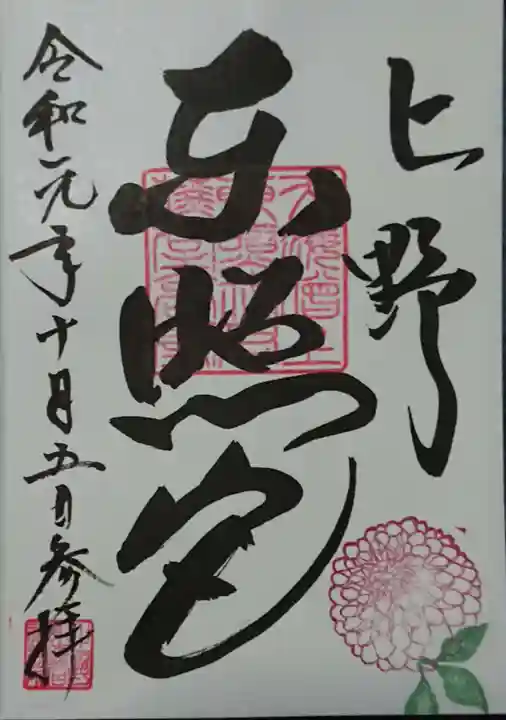 上野
東照宮
令和元年十月五日参拝